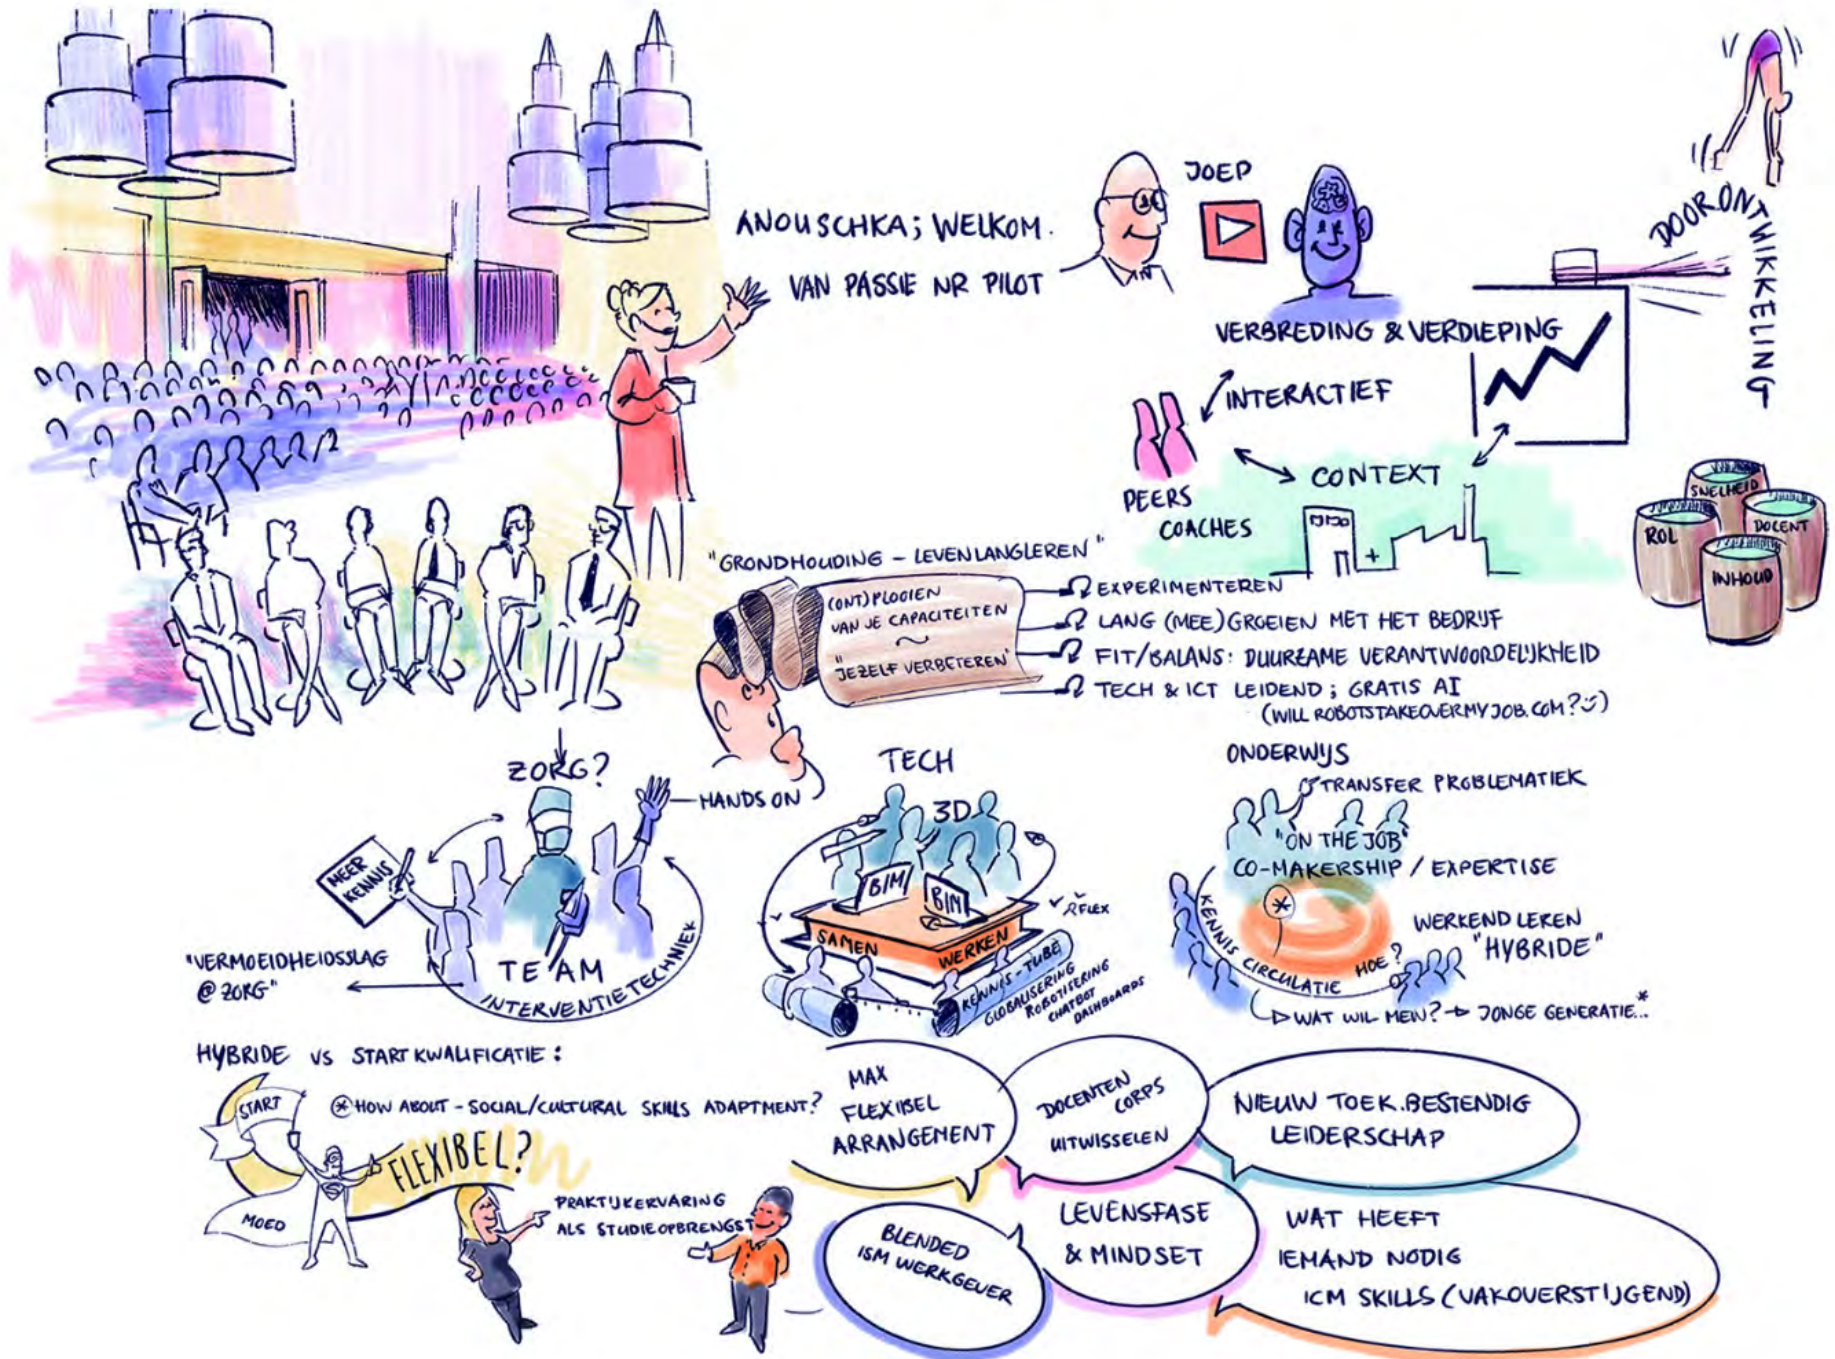 ANOUSCHKA; WELKOM.
VAN PASSIE NR PILOT
JOEP
DOORONTWIKKELING
VERBREDING & VERDIEPING
INTERACTIEF
CONTEXT
PEERS
COACHES
SNELHEID
ROL
DOCENT
INHOUD
"GRONDHOUDING - LEVENLANGLEREN"
(ONT)PLOOIEN
VAN JE CAPACITEITEN
~
"JEZELF VERBETEREN"
EXPERIMENTEREN
LANG (MEE)GROEIEN MET HET BEDRIJF
FIT/BALANS: DUURZAME VERANTWOORDELIJKHEID
TECH & ICT LEIDEND; GRATIS AI
(WILL ROBOTSTAKEOVERMYJOB.COM?)
ZORG?
HANDS ON
MEER
KENNIS
TEAM
INTERVENTIETECHNIEK
"VERMOEIDHEIDSSLAG
@ ZORG"
TECH
3D
BIM
BIM
SAMEN WERKEN
FLEX
KENNIS-TUBE
GLOBALISERING
ROBOTISERING
CHATBOT
DASHBOARDS
ONDERWIJS
TRANSFER PROBLEMATIEK
"ON THE JOB"
CO-MAKERSHIP / EXPERTISE
*
KENNIS CIRCULATIE
HOE?
WERKEND LEREN
"HYBRIDE"
WAT WIL MEN? → JONGE GENERATIE...*
HYBRIDE VS STARTKWALIFICATIE:
* HOW ABOUT - SOCIAL/CULTURAL SKILLS ADAPTMENT?
START
MOED
FLEXIBEL?
PRAKTIJKERVARING
ALS STUDIEOPBRENGST
MAX
FLEXIBEL
ARRANGEMENT
DOCENTEN
CORPS
UITWISSELEN
NIEUW TOEK.BESTENDIG
LEIDERSCHAP
BLENDED
ISM WERKGEVER
LEVENSFASE
& MINDSET
WAT HEEFT
IEMAND NODIG
ICM SKILLS (VAKOVERSTIJGEND)